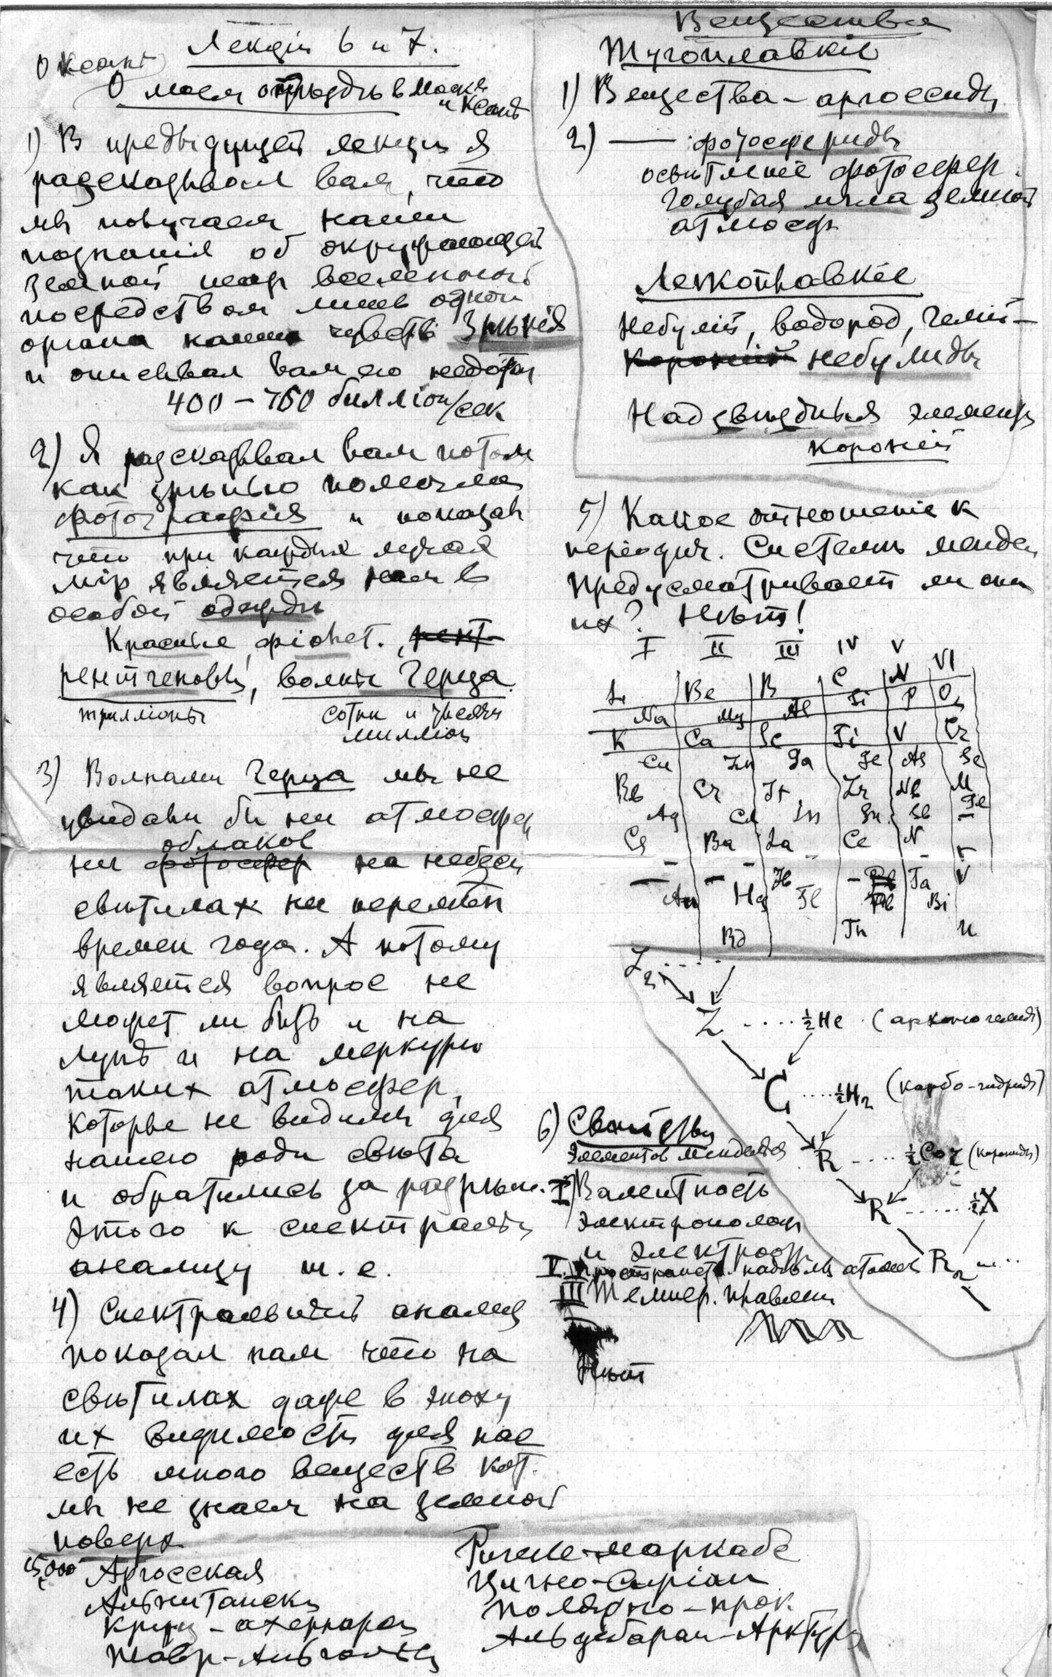 Лекціи 6 и 7.
О моей
1) В предъидущей лекціи я
разсказывал вам, что
мы получаем наши
познанія об окружающей
земной шар вселенной
посредством лишь одной
органа наших чувств Зрѣнія
и описывал вам его недост
400 – 760 билліон/сек
2) Я разсказывал вам потом
как зрѣнію помогла
фотографія и показал
что при каждых лучах
мір является нам в
особой одежды
Красные, фіолет.,
рентгеновы, волны Герца
трилліоны сотни и тысячи
милліон
3) Волнами Герца мы не
увидали бы ни атмосфер
облаков
ни на небесн
свѣтилах ни перемѣн
времен года. А потому
является вопрос не
может ли быть и на
лунѣ и на меркуріи
таких атмосфер,
которые не видимы для
нашего рода свѣта
и обратились за разрѣш.
этого к спектральн
анализу т. е.
4) Спектральный анализ
показал нам что на
свѣтилах даже в эпоху
их видимости для нас
есть много веществ кот.
мы не знаем на земной
поверх
Вещества
Тугоплавкіе
1) Вещества – аргоссиды
2) — фотосфериды
голубая мгла земной
атмосф
Легкоплавкіе
Небулій, водород, гелій –
небулиды
Надзвѣздныя элементы
короній
5) Какое отношеніе к
періодич. Системы менде
предусматривает ли он
их? Нѣт!
I II III IV V VI
Li Be B C N O
Na Mg Al Si P
K Ca Sc Ti V Cr
Cu Zn Ga Ge As Se
Rb Zr Nb M
Ag Cd In Sn
Ba La Ce
Au Hg Tl Pb Bi
Rd Th U
Z₂ ....
Z .... ½He
C .... ½H₂ (карбо-гидриды)
R .... ½Co (корониды)
R ...... ½X
R₂ ...
6) Свойства
элементов Менделѣева
I Валентность
и электроот
III Темпер. плавлен
Нѣт
15,000 Аргосская
Альнитаски
Круц – ахернаро
Тавр-Альголь
Ригеле-маркабе
Цигно-Сиріан
Полярно – прок
Альдебаран-Арктур